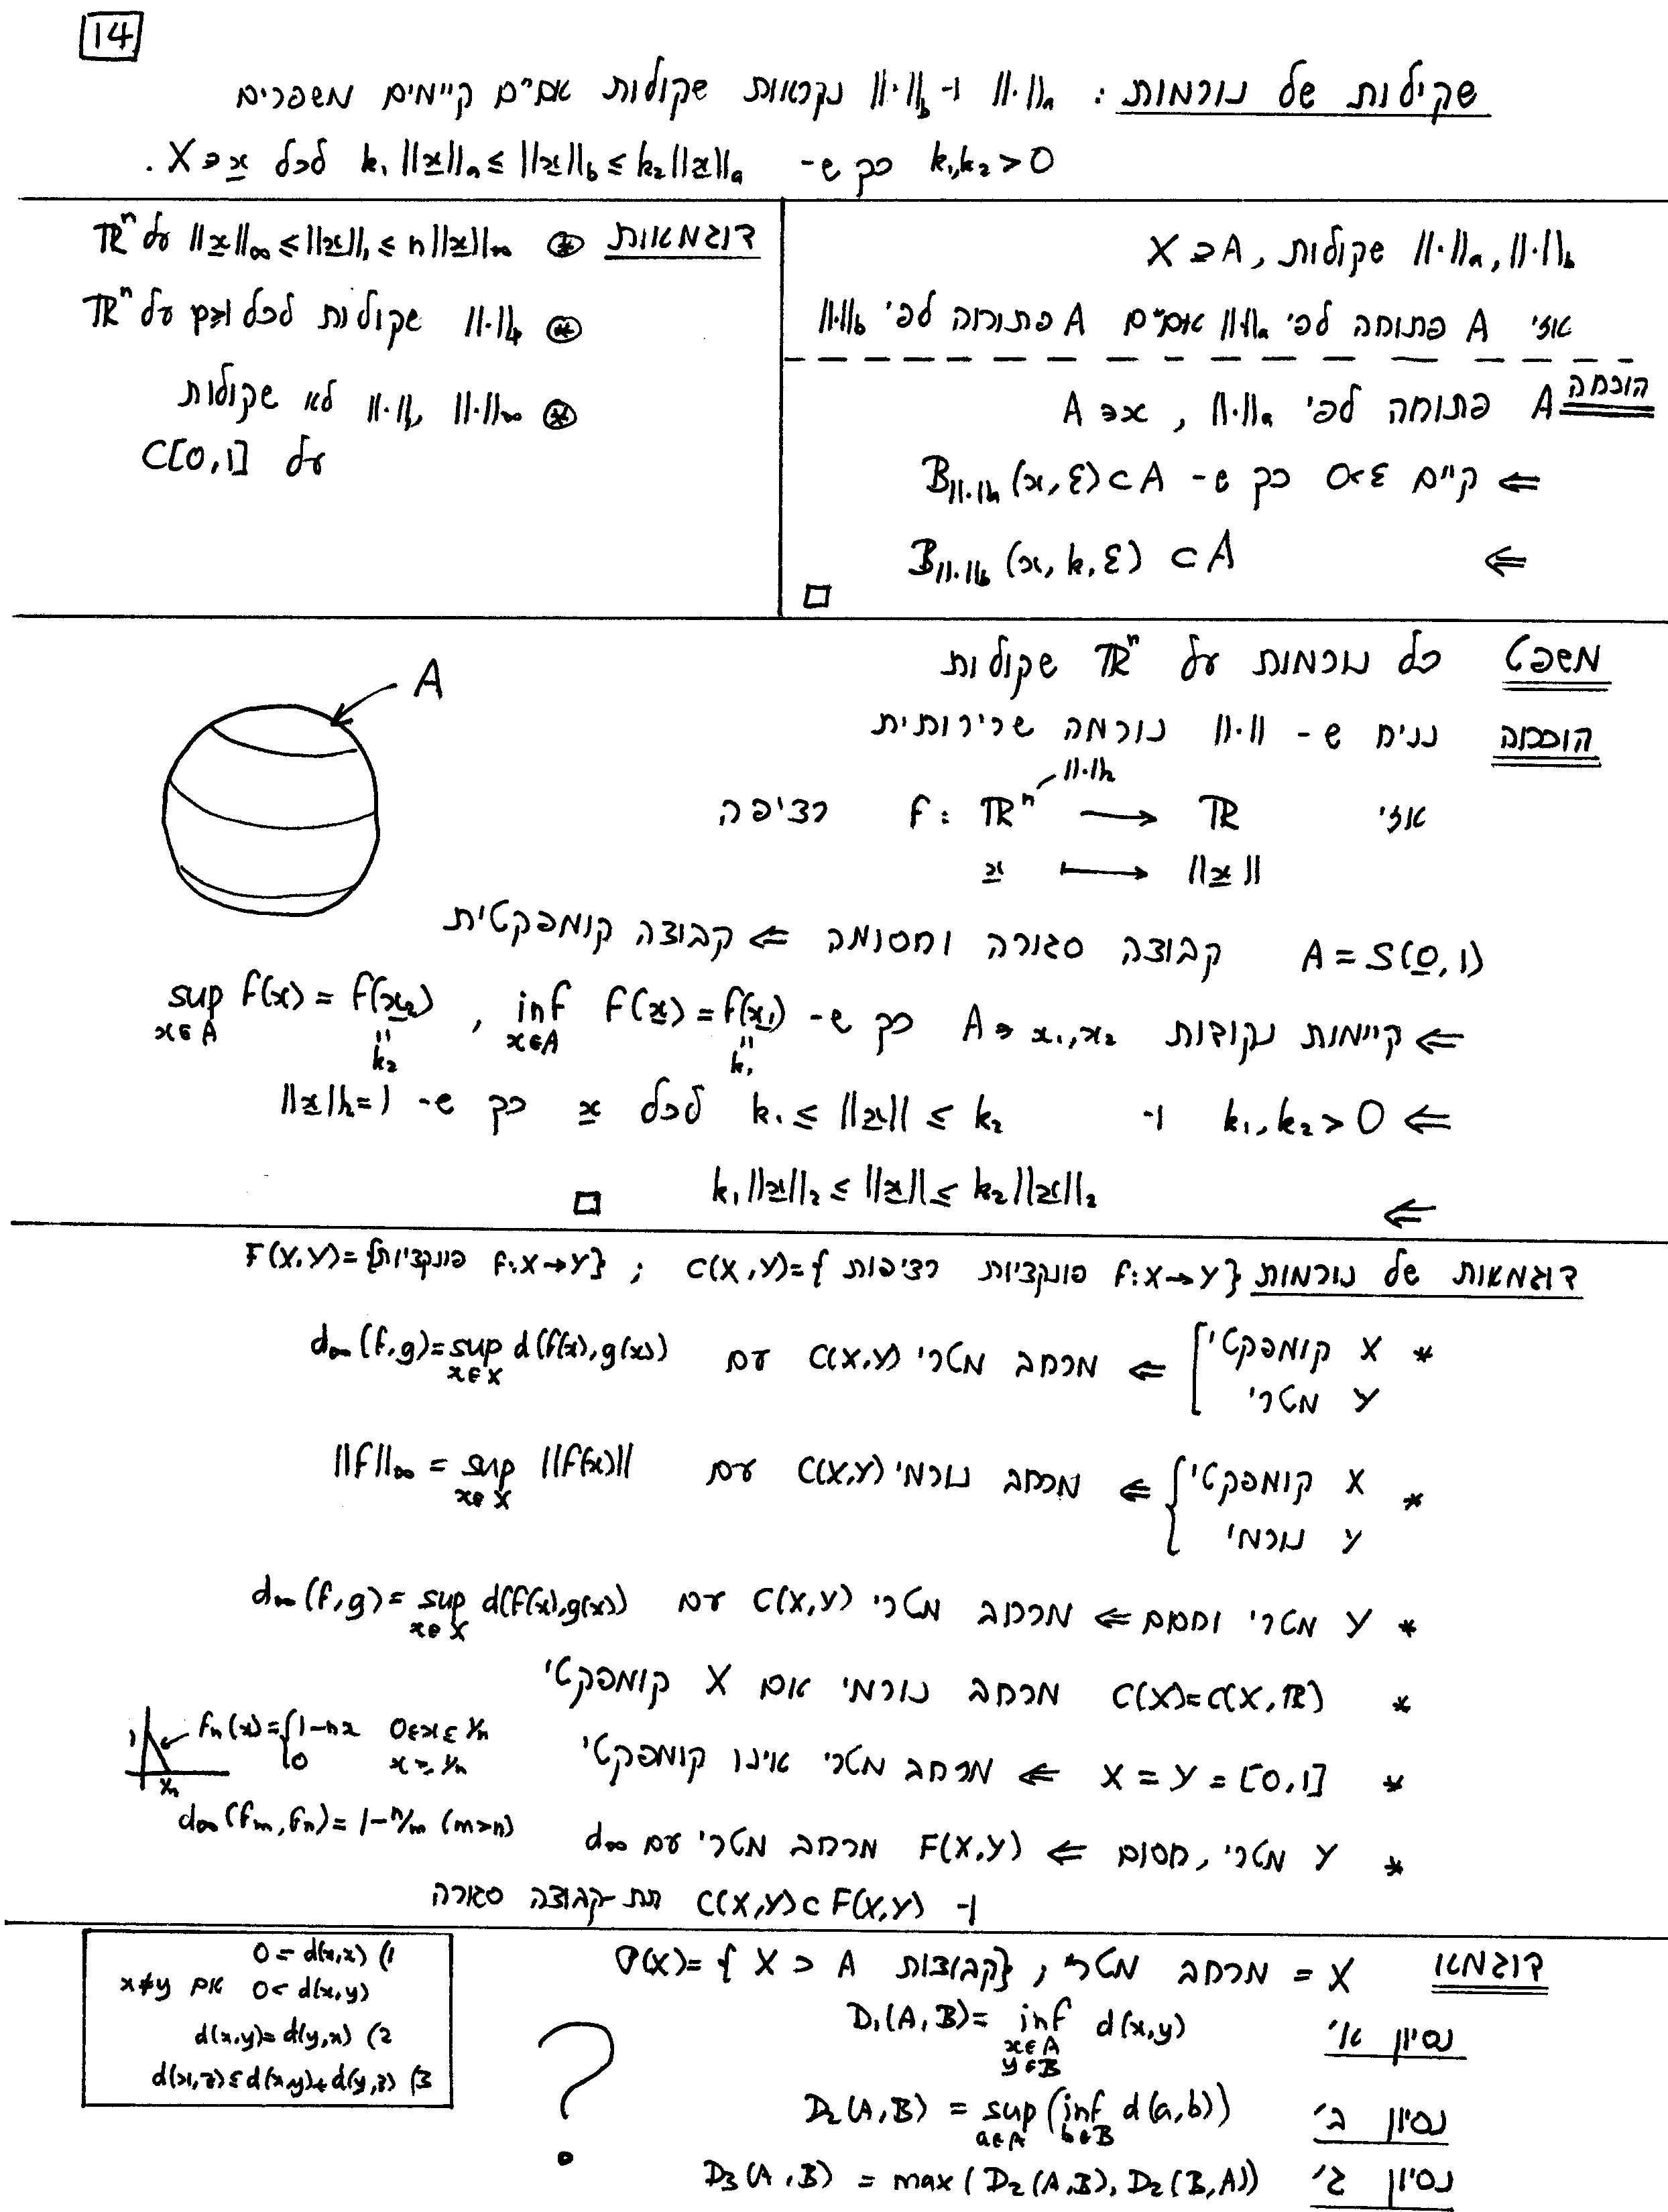 14
שקילות של נורמות : ||·||ₐ ו- ||·||_b נקראות שקולות אם״ם קיימים מספרים
k₁,k₂ > 0 כך ש- k₁||x||ₐ ≤ ||x||_b ≤ k₂||x||ₐ לכל x ∈ X .
||·||ₐ, ||·||_b שקולות, A ⊂ X
אזי A פתוחה לפי ||·||ₐ אם״ם A פתוחה לפי ||·||_b
הוכחה A פתוחה לפי ||·||ₐ , x ∈ A
⇐ קיים ε>0 כך ש- B_{||·||ₐ}(x,ε) ⊂ A
⇐ B_{||·||_b}(x,k₁ε) ⊂ A
□
דוגמאות ⊛ ||x||∞ ≤ ||x||₁ ≤ n||x||∞ על ℝⁿ
⊛ ||·||ₚ שקולות לכל 1≤p על ℝⁿ
⊛ ||·||₁, ||·||∞ לא שקולות
על C[0,1]
משפט כל נורמות על ℝⁿ שקולות
A
הוכחה נניח ש- ||·|| נורמה שרירותית
||·||₂
אזי f : ℝⁿ → ℝ רציפה
x ↦ ||x||
A = S(0,1) קבוצה סגורה וחסומה ⇐ קבוצה קומפקטית
⇐ קיימות נקודות x₁,x₂ ∈ A כך ש- inf_{x∈A} f(x) = f(x₁) , sup_{x∈A} f(x) = f(x₂)
" k₁ " k₂
⇐ k₁,k₂ > 0 ו- k₁ ≤ ||x|| ≤ k₂ לכל x כך ש- ||x||₂=1
⇐ k₁||x||₂ ≤ ||x|| ≤ k₂||x||₂ □
דוגמאות של נורמות C(X,Y)={פונקציות רציפות f:X→Y} ; F(X,Y)={פונקציות f:X→Y}
* X קומפקטי ⇐ C(X,Y) מרחב מטרי עם d∞(f,g)=sup_{x∈X} d(f(x),g(x))
Y מטרי
* X קומפקטי ⇐ C(X,Y) מרחב נורמי עם ||f||∞ = sup_{x∈X} ||f(x)||
Y נורמי
* Y מטרי וחסום ⇐ מרחב מטרי C(X,Y) עם d∞(f,g)=sup_{x∈X} d(f(x),g(x))
* C(X)=C(X,ℝ) מרחב נורמי אם X קומפקטי
* X = Y = [0,1] ⇐ מרחב מטרי אינו קומפקטי
1 1/n fₙ(x)={1-nx 0≤x≤1/n
0 x≥1/n
d∞(fₘ,fₙ)=1-n/m (m>n)
* Y מטרי, חסום ⇐ F(X,Y) מרחב מטרי עם d∞
ו- C(X,Y)⊂F(X,Y) תת-קבוצה סגורה
דוגמא X = מרחב מטרי ; P(X)={קבוצות A ⊂ X}
נסיון א' D₁(A,B)= inf_{x∈A y∈B} d(x,y)
נסיון ב' D₂(A,B) = sup_{a∈A}(inf_{b∈B} d(a,b))
נסיון ג' D₃(A,B) = max(D₂(A,B), D₂(B,A))
?
1) d(x,x) = 0
d(x,y) > 0 אם x≠y
2) d(x,y)=d(y,x)
3) d(x,z)≤d(x,y)+d(y,z)